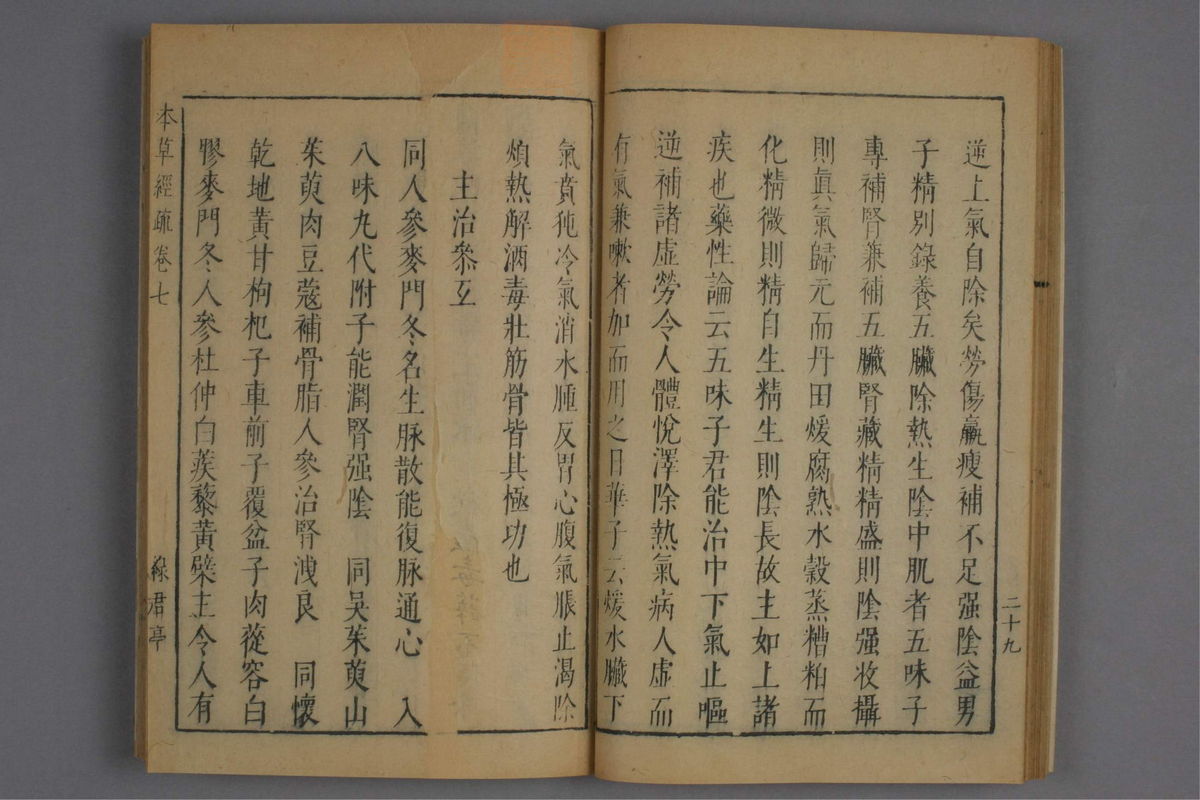 逆上氣自除矣勞傷羸瘦補不足强陰益男
子精別錄養五臟除熱生陰中肌者五味子
專補腎兼補五臟腎藏精精盛則陰强收攝
則眞氣歸元而丹田煖腐熟水穀蒸糟粕而
化精微則精自生精生則陰長故主如上諸
疾也藥性論云五味子君能治中下氣止嘔
逆補諸虛勞令人體悅澤除熱氣病人虛而
有氣兼嗽者加而用之日華子云煖水臟下
二十九
氣賁㹠冷氣消水腫反胃心腹氣脹止渴除
煩熱解酒毒壯筋骨皆其極功也
主治叅互
同人參麥門冬名生脉散能復脉通心 入
八味丸代附子能潤腎强陰 同吳茱萸山
茱萸肉豆蔻補骨脂人參治腎洩良 同懷
乾地黃甘枸杞子車前子覆盆子肉蓯容白
膠麥門冬人參杜仲白蒺藜黃檗主令人有
本草經疏卷七
綠君亭